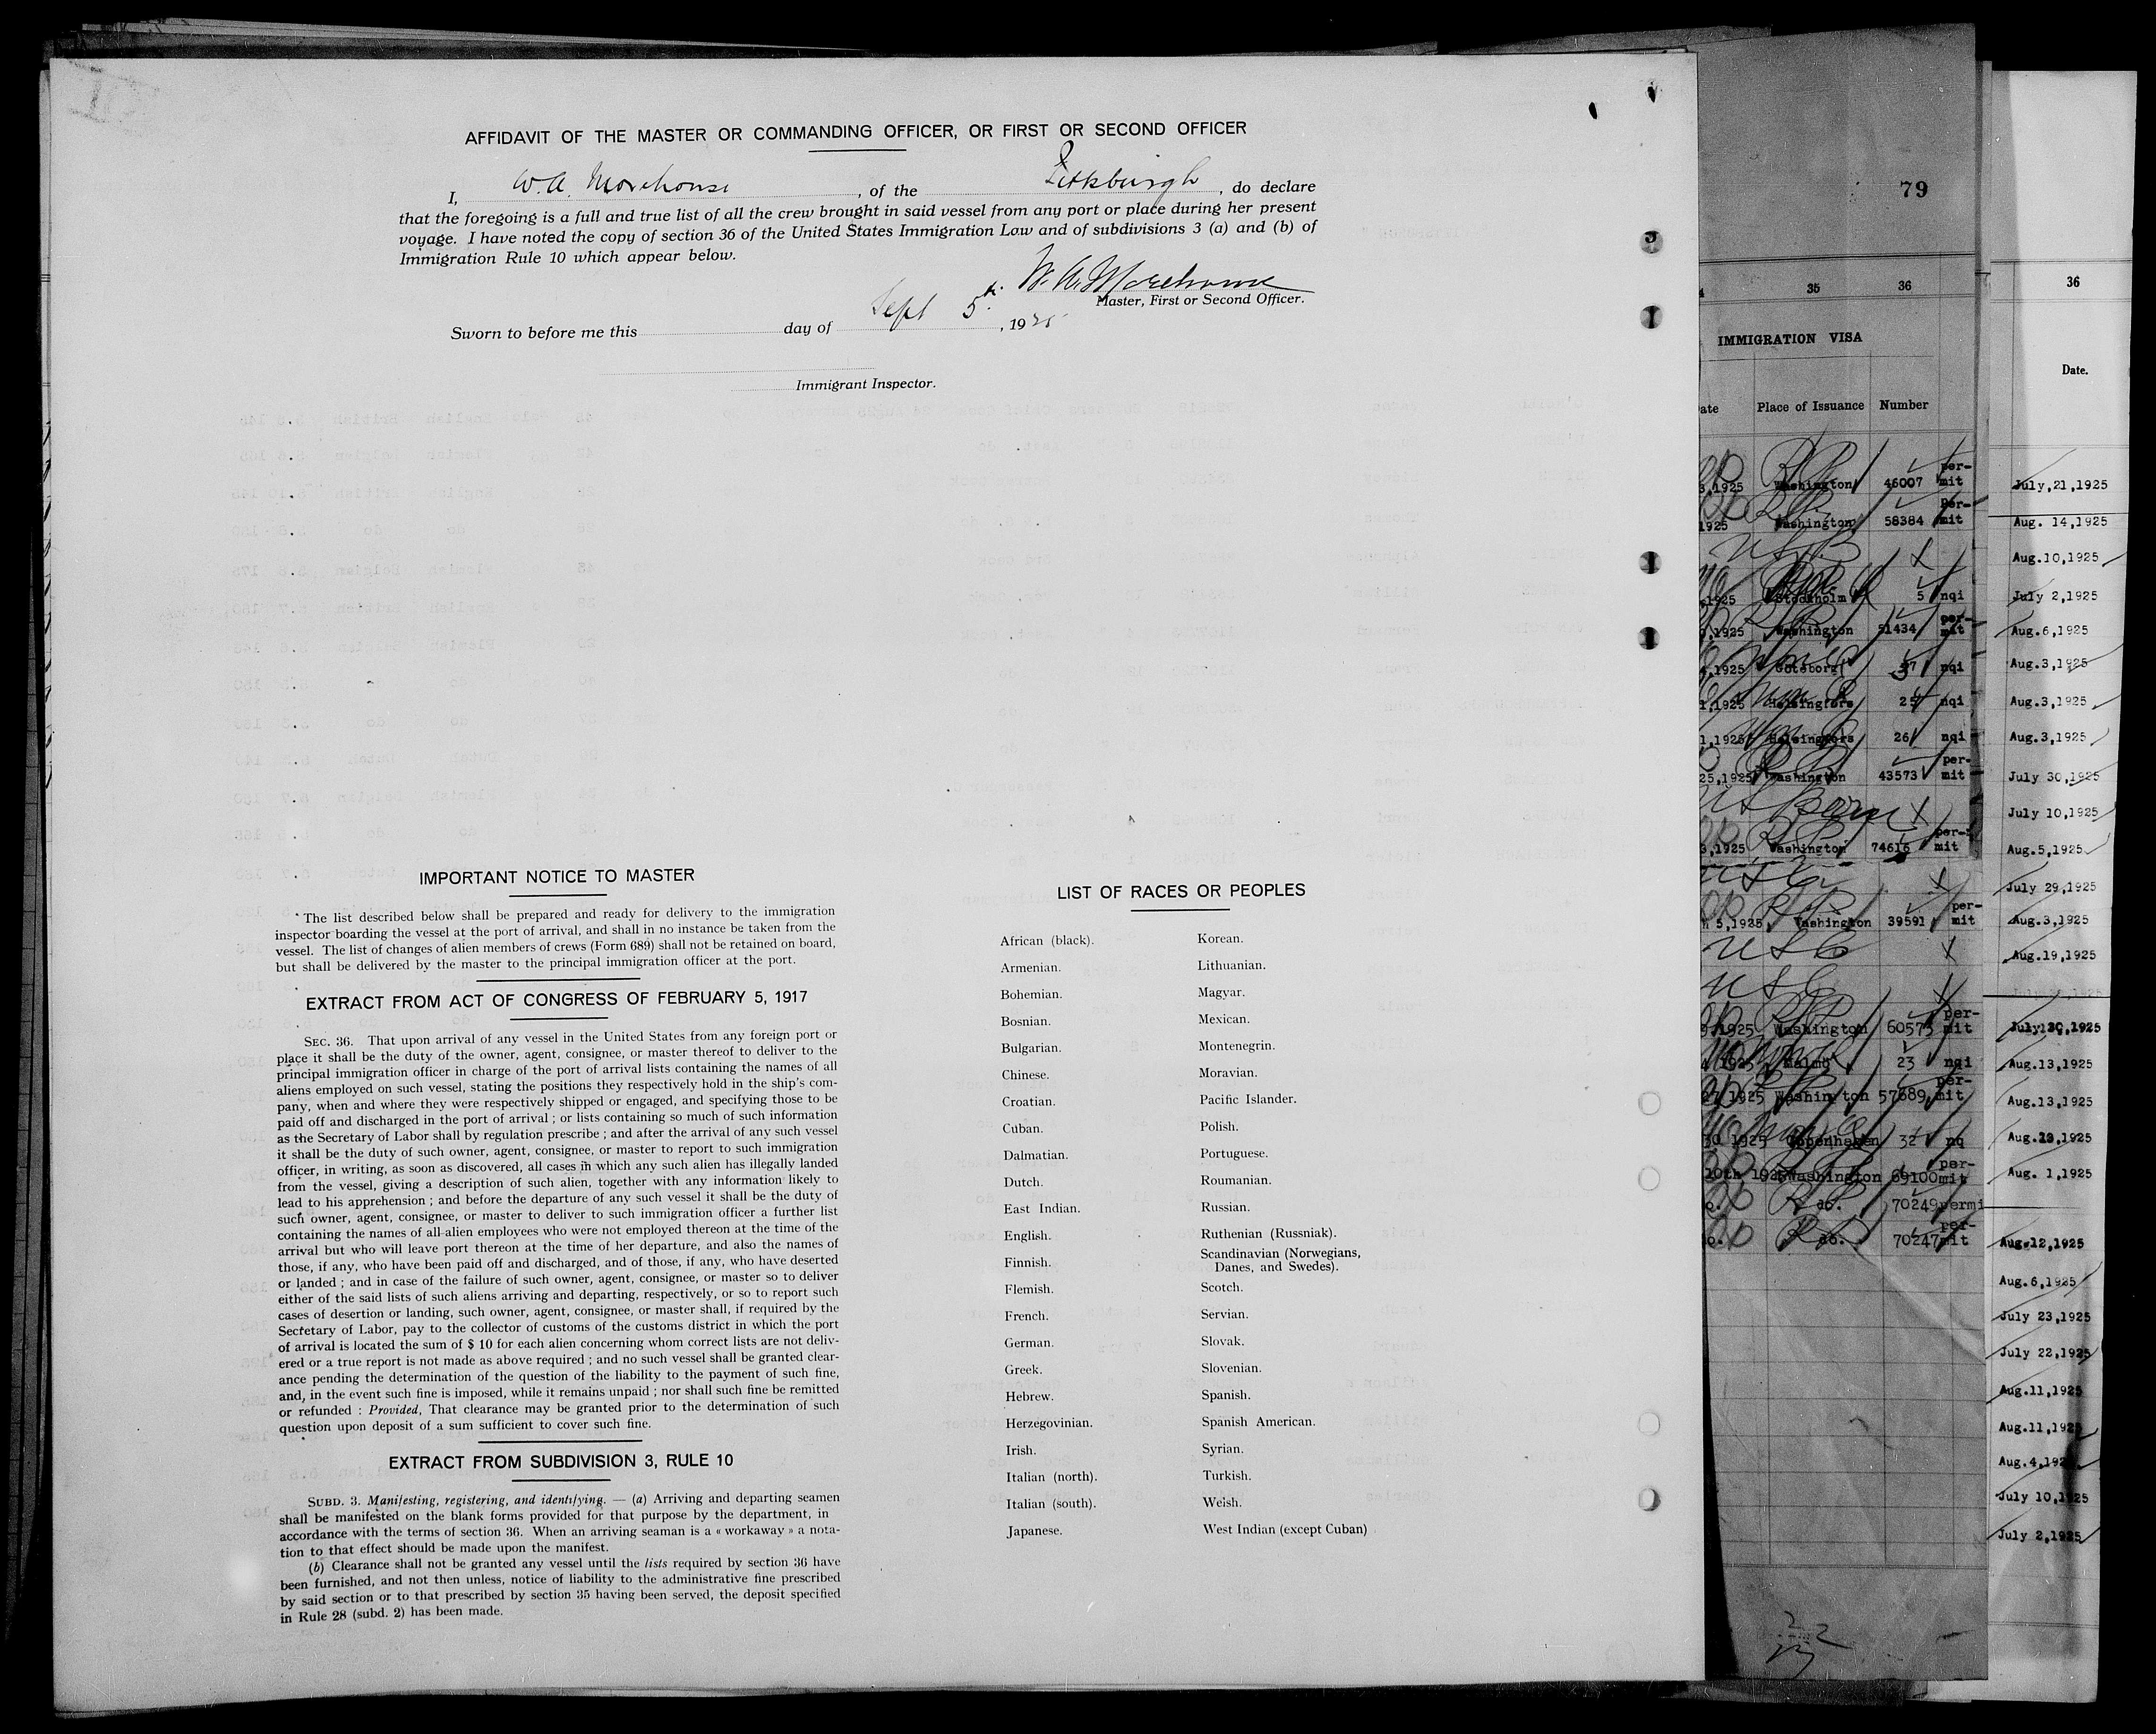 AFFIDAVIT OF THE MASTER OR COMMANDING OFFICER, OR FIRST OR SECOND OFFICER
I, W. A. Morehouse, of the Pittsburgh, do declare
that the foregoing is a full and true list of all the crew brought in said vessel from any port or place during her present
voyage. I have noted the copy of section 36 of the United States Immigration Law and of subdivisions 3 (a) and (b) of
Immigration Rule 10 which appear below.
W. A. Morehouse
Master, First or Second Officer.
Sworn to before me this day of Sept 5th, 1925
Immigrant Inspector.
IMPORTANT NOTICE TO MASTER
The list described below shall be prepared and ready for delivery to the immigration
inspector boarding the vessel at the port of arrival, and shall in no instance be taken from the
vessel. The list of changes of alien members of crews (Form 689) shall not be retained on board,
but shall be delivered by the master to the principal immigration officer at the port.
EXTRACT FROM ACT OF CONGRESS OF FEBRUARY 5, 1917
SEC. 36. That upon arrival of any vessel in the United States from any foreign port or
place it shall be the duty of the owner, agent, consignee, or master thereof to deliver to the
principal immigration officer in charge of the port of arrival lists containing the names of all
aliens employed on such vessel, stating the positions they respectively hold in the ship's com-
pany, when and where they were respectively shipped or engaged, and specifying those to be
paid off and discharged in the port of arrival ; or lists containing so much of such information
as the Secretary of Labor shall by regulation prescribe ; and after the arrival of any such vessel
it shall be the duty of such owner, agent, consignee, or master to report to such immigration
officer, in writing, as soon as discovered, all cases in which any such alien has illegally landed
from the vessel, giving a description of such alien, together with any information likely to
lead to his apprehension ; and before the departure of any such vessel it shall be the duty of
such owner, agent, consignee, or master to deliver to such immigration officer a further list
containing the names of all alien employees who were not employed thereon at the time of the
arrival but who will leave port thereon at the time of her departure, and also the names of
those, if any, who have been paid off and discharged, and of those, if any, who have deserted
or landed ; and in case of the failure of such owner, agent, consignee, or master so to deliver
either of the said lists of such aliens arriving and departing, respectively, or so to report such
cases of desertion or landing, such owner, agent, consignee, or master shall, if required by the
Secretary of Labor, pay to the collector of customs of the customs district in which the port
of arrival is located the sum of $ 10 for each alien concerning whom correct lists are not deliv-
ered or a true report is not made as above required ; and no such vessel shall be granted clear-
ance pending the determination of the question of the liability to the payment of such fine,
and, in the event such fine is imposed, while it remains unpaid ; nor shall such fine be remitted
or refunded : Provided, That clearance may be granted prior to the determination of such
question upon deposit of a sum sufficient to cover such fine.
EXTRACT FROM SUBDIVISION 3, RULE 10
SUBD. 3. Manifesting, registering, and identifying. — (a) Arriving and departing seamen
shall be manifested on the blank forms provided for that purpose by the department, in
accordance with the terms of section 36. When an arriving seaman is a « workaway » a nota-
tion to that effect should be made upon the manifest.
(b) Clearance shall not be granted any vessel until the lists required by section 36 have
been furnished, and not then unless, notice of liability to the administrative fine prescribed
by said section or to that prescribed by section 35 having been served, the deposit specified
in Rule 28 (subd. 2) has been made.
LIST OF RACES OR PEOPLES
African (black).
Armenian.
Bohemian.
Bosnian.
Bulgarian.
Chinese.
Croatian.
Cuban.
Dalmatian.
Dutch.
East Indian.
English.
Finnish.
Flemish.
French.
German.
Greek.
Hebrew.
Herzegovinian.
Irish.
Italian (north).
Italian (south).
Japanese.
Korean.
Lithuanian.
Magyar.
Mexican.
Montenegrin.
Moravian.
Pacific Islander.
Polish.
Portuguese.
Roumanian.
Russian.
Ruthenian (Russniak).
Scandinavian (Norwegians,
Danes, and Swedes).
Scotch.
Servian.
Slovak.
Slovenian.
Spanish.
Spanish American.
Syrian.
Turkish.
Welsh.
West Indian (except Cuban)
79
35 36
IMMIGRATION VISA
Place of Issuance Number
1925 Washington 46007 per-mit
1925 Washington 58384 per-mit
1925 Stockholm 5 nqi
1925 Washington 51434 per-mit
1925 Goteborg 37 nqi
1925 Helsingfors 25 nqi
1925 Helsingfors 26 nqi
25,1925 Washington 43573 per-mit
US Born
1925 Washington 74616 per-mit
5,1925 Washington 39591 per-mit
USC
USC
1925 Washington 60573 per-mit
1925 Malmo 23 nqi
1925 Washington 57689 per-mit
1925 Copenhagen 32 nq
10th 1925 Washington 69100 per-mit
do. 70249 permi
do. 70247 per-mit
36
Date.
July,21,1925
Aug. 14,1925
Aug.10,1925
July 2,1925
Aug.6,1925
Aug.3,1925
Aug.3,1925
Aug.3,1925
July 30,1925
July 10,1925
Aug.5,1925
July 29,1925
Aug.3,1925
Aug.19,1925
Aug.13,1925
Aug.13,1925
Aug. 1,1925
Aug.12,1925
Aug.6,1925
July 23,1925
July 22,1925
Aug.11,1925
Aug.11,1925
Aug.4,192
July 10,1925
July 2,1925